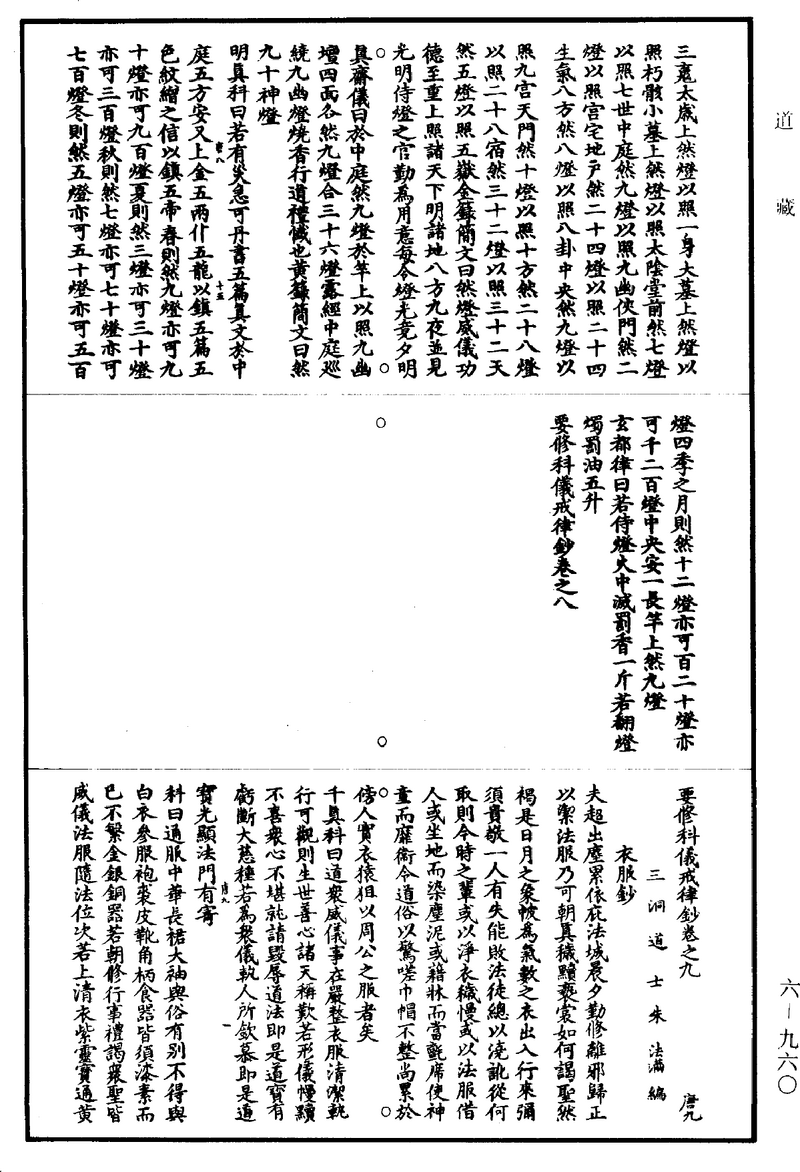 道藏
三竈太歲上然燈以照一身大墓上然燈以
照朽骸小墓上然燈以照太陰堂前然七燈
以照七世中庭然九燈以照九幽俠門然二
燈以照宮宅地戶然二十四燈以照二十四
生氣八方然八燈以照八卦中央然九燈以
照九宮天門然十燈以照十方然二十八燈
以照二十八宿然三十二燈以照三十二天
然五燈以照五嶽金籙簡文曰然燈威儀功
德至重上照諸天下明諸地八方九夜並見
光明侍燈之官勤為用意每令燈光竟夕明
真齋儀曰於中庭然九燈於竿上以照九幽
壇四面各然九燈合三十六燈露經中庭巡
繞九幽燈燒香行道禮懺也黃籙簡文曰然
九十神燈
明真科曰若有災急可丹書五篇真文於中
唐八
十五
庭五方安又上金五兩什五龍以鎮五篇五
色紋繒之信以鎮五帝春則然九燈亦可九
十燈亦可九百燈夏則然三燈亦可三十燈
亦可三百燈秋則然七燈亦可七十燈亦可
七百燈冬則然五燈亦可五十燈亦可五百
燈四季之月則然十二燈亦可百二十燈亦
可千二百燈中央安一長竿上然九燈
玄都律曰若侍燈火中滅罰香一斤若翻燈
燭罰油五升
要修科儀戒律鈔卷之八
要修科儀戒律鈔卷之九
唐九
三洞道士朱法滿編
衣服鈔
夫超出塵累依庇法城晨夕勤修離邪歸正
以潔法服乃可朝真穢黷褻裳如何謁聖然
褐是日月之象帔為氣數之衣出入行來彌
須貴敬一人有失能敗法徒總以澆訛從何
取則今時之輩或以淨衣穢慢或以法服借
人或坐地而染塵泥或藉牀而當氈席使神
童而靡衛令道俗以驚嗟巾帽不整尚累於
傍人實衣猿狙以周公之服者矣
千真科曰道眾威儀事在嚴整衣服清潔軌
行可觀則生世善心諸天稱歎若形儀慢黷
不喜眾心不堪毗諸毀辱道法即是道寶有
虧斷大慈種若為眾儀執人所欽慕即是道
寶光顯法門有寄
唐九
一
科曰道服中華長裙大袖與俗有別不得與
白衣參服袍裘皮靴角柄食器皆須漆素而
已不繫金銀銅器若朝修行事禮謁眾聖皆
威儀法服隨法位次若上清衣紫靈寶通黃
六—九六〇